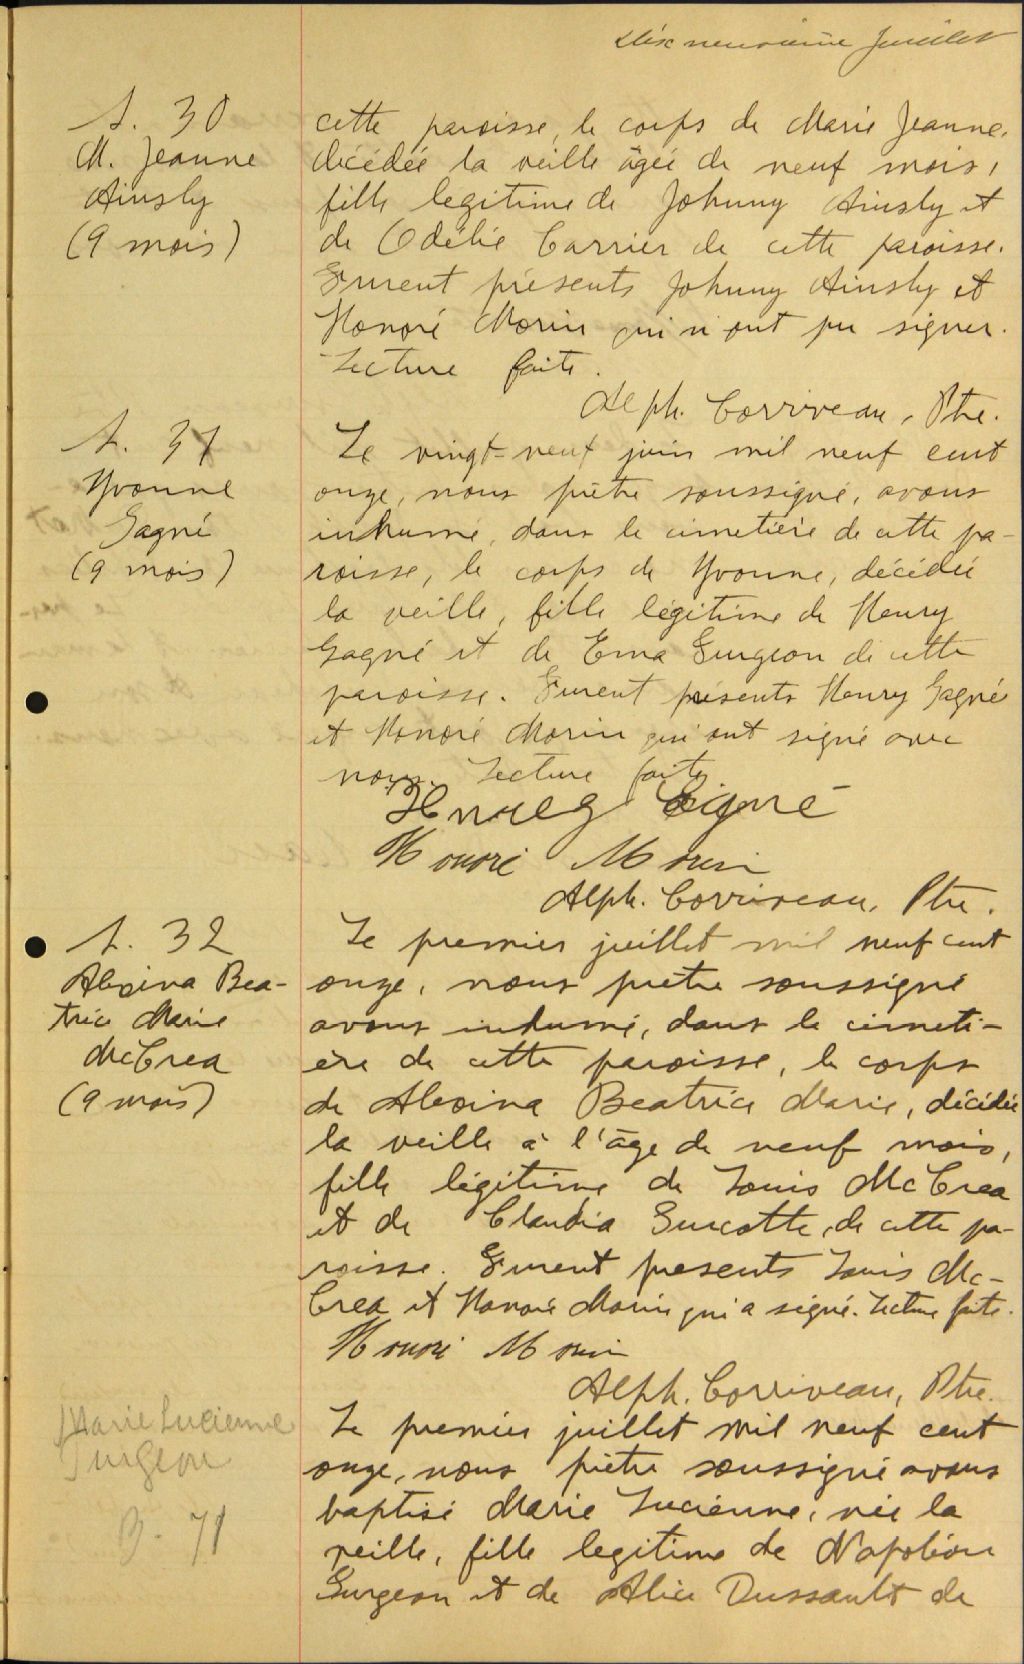 Dix neuvième Juillet
S. 30
M. Jeanne
Ainsly
(9 mois)
cette paroisse, le corps de Marie Jeanne,
décédée la veille âgée de neuf mois,
fille legitime de Johnny Ainsly et
de Odélie Carrier de cette paroisse.
Furent présents Johnny Ainsly et
Honoré Morin qui n'ont pu signer.
Lecture faite.
Alph. Corriveau, Ptre.
S. 31
Yvonne
Gagné
(9 mois)
Le vingt-neuf juin mil neuf cent
onze, nous prêtre soussigné, avons
inhumé, dans le cimetière de cette pa-
roisse, le corps de Yvonne, décédée
la veille, fille légitime de Henry
Gagné et de Erna Turgeon de cette
paroisse. Furent présents Henry Gagné
et Honoré Morin qui ont signé avec
nous. Lecture faite.
Honoré Morin
Alph. Corriveau, Ptre.
S. 32
Alexina Bea-
trice Marie
McCrea
(9 mois)
Le premier juillet mil neuf cent
onze, nous prêtre soussigné
avons inhumé, dans le cimeti-
ère de cette paroisse, le corps
de Alexina Beatrice Marie, décédée
la veille à l'âge de neuf mois,
fille légitime de Louis McCrea
et de Claudia Turcotte, de cette pa-
roisse. Furent presents Louis Mc-
Crea et Honoré Morin qui a signé. Lecture faite.
Honoré Morin
Alph. Corriveau, Ptre.
Marie Lucienne
Turgeon
B. 71
Le premier juillet mil neuf cent
onze, nous prêtre soussigné avons
baptisé Marie Lucienne, née la
veille, fille legitime de Napoléon
Turgeon et de Alice Dussault de